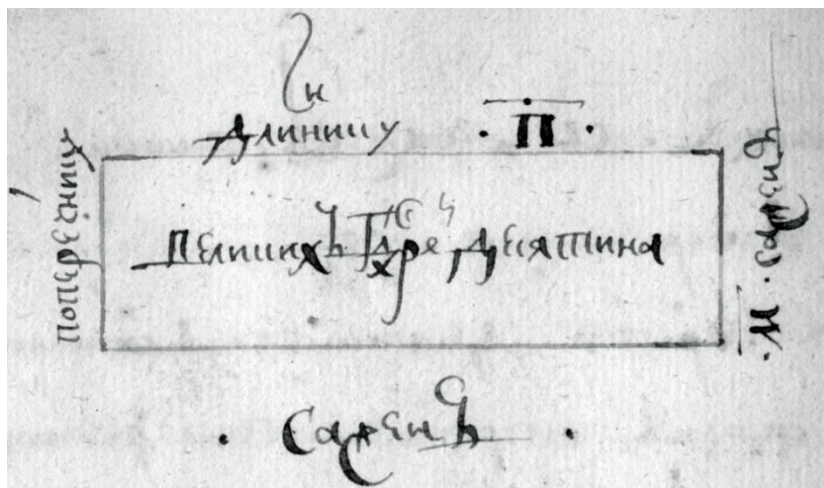 Длинику · П ·
Поперечнику
Великихъ Гдрей десятина
· М · сажень
· Сажень ·